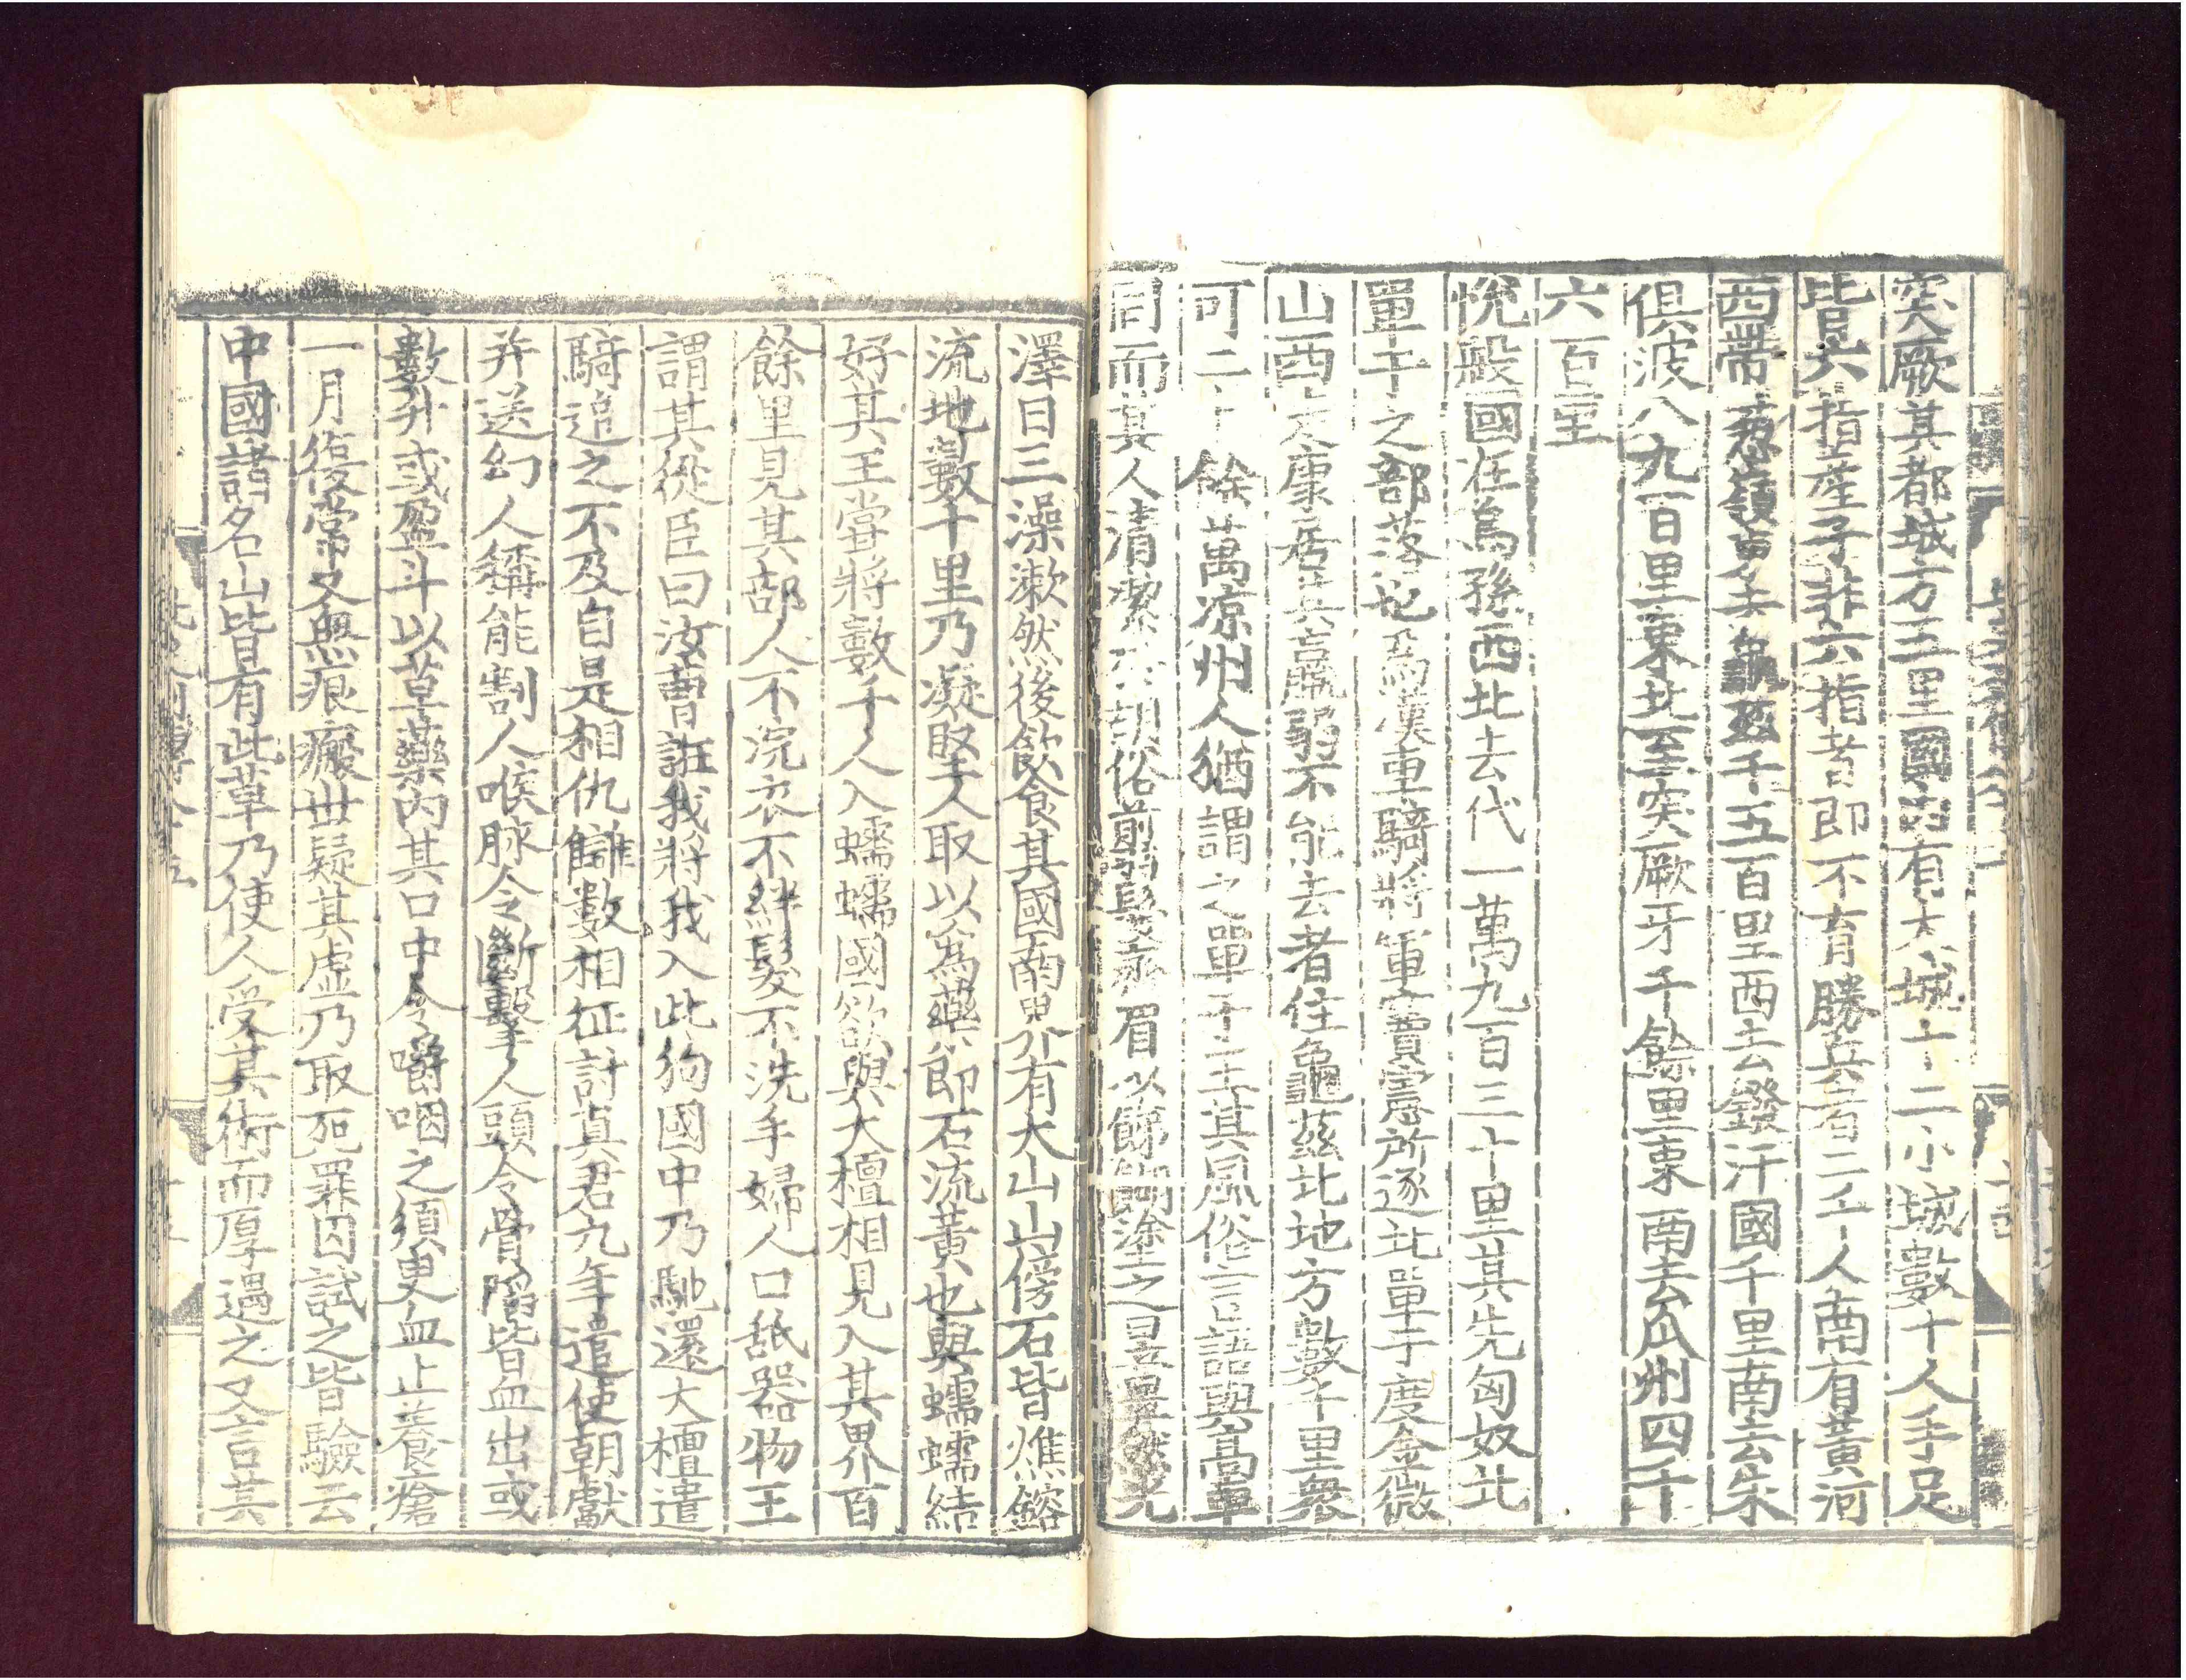 突厥其都城方三里國內有大城十二小城數十人手足
皆六指産子非六指者即不育勝兵者二千人南有黃河
西帶葱嶺東去龜茲千五百里西去鏺汗國千里南去朱
俱波八九百里東北至突厥牙千餘里東南去瓜州四千
六百里
悅般國在烏孫西北去代一萬九百三十里其先匈奴北
單于之部落也爲漢車騎將軍竇憲所逐北單于度金微
山西走康居其羸弱不能去者住龜茲北地方數千里衆
可二十餘萬凉州人猶謂之單于王其風俗言語與髙車
同而其人清潔於胡俗剪髮齊眉以餬塗之昱昱然光
澤日三澡漱然後飮食其國南界有大山山傍石皆燋鎔
流地數十里乃凝堅人取以爲藥即石流黃也與蠕蠕結
好其王嘗將數千人入蠕蠕國欲與大檀相見入其界百
餘里見其部人不浣衣不絆髮不洗手婦人口舐器物王
謂其從臣曰汝曹誑我將我入此狗國中乃馳還大檀遣
騎追之不及自是相仇讎數相征討真君九年遣使朝獻
并送幻人稱能割人喉脉令斷擊人頭令骨陷皆血出或
數升或盈斗以草藥內其口中令嚼咽之須臾血止養瘡
一月復常又無痕瘢世疑其虛乃取死罪囚試之皆驗云
中國諸名山皆有此草乃使人受其術而厚遇之又言其